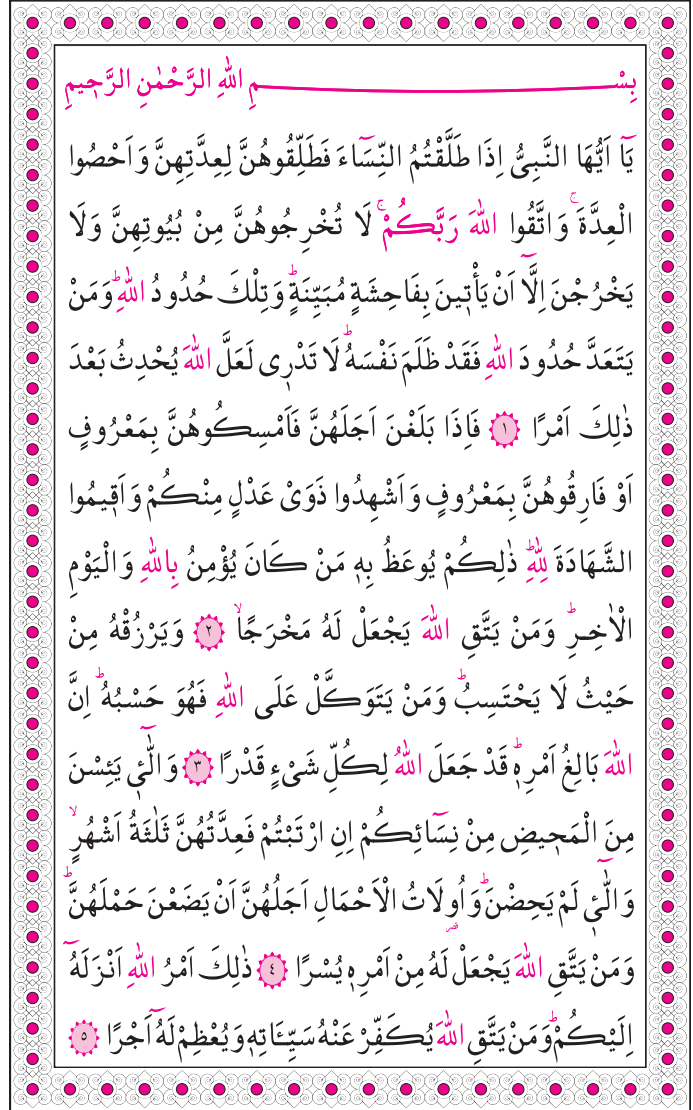 بِسْمِ اللّٰهِ الرَّحْمٰنِ الرَّحِيمِ
يَٓا اَيُّهَا النَّبِيُّ اِذَا طَلَّقْتُمُ النِّسَٓاءَ فَطَلِّقُوهُنَّ لِعِدَّتِهِنَّ وَاَحْصُوا
الْعِدَّةَۚ وَاتَّقُوا اللّٰهَ رَبَّكُمْۚ لَا تُخْرِجُوهُنَّ مِنْ بُيُوتِهِنَّ وَلَا
يَخْرُجْنَ اِلَّٓا اَنْ يَأْت۪ينَ بِفَاحِشَةٍ مُبَيِّنَةٍۜ وَتِلْكَ حُدُودُ اللّٰهِۜ وَمَنْ
يَتَعَدَّ حُدُودَ اللّٰهِ فَقَدْ ظَلَمَ نَفْسَهُۜ لَا تَدْر۪ي لَعَلَّ اللّٰهَ يُحْدِثُ بَعْدَ
ذٰلِكَ اَمْرًا ﴿١﴾ فَاِذَا بَلَغْنَ اَجَلَهُنَّ فَاَمْسِكُوهُنَّ بِمَعْرُوفٍ
اَوْ فَارِقُوهُنَّ بِمَعْرُوفٍ وَاَشْهِدُوا ذَوَيْ عَدْلٍ مِنْكُمْ وَاَق۪يمُوا
الشَّهَادَةَ لِلّٰهِۜ ذٰلِكُمْ يُوعَظُ بِه۪ مَنْ كَانَ يُؤْمِنُ بِاللّٰهِ وَالْيَوْمِ
الْاٰخِرِۜ وَمَنْ يَتَّقِ اللّٰهَ يَجْعَلْ لَهُ مَخْرَجًاۙ ﴿٢﴾ وَيَرْزُقْهُ مِنْ
حَيْثُ لَا يَحْتَسِبُۜ وَمَنْ يَتَوَكَّلْ عَلَى اللّٰهِ فَهُوَ حَسْبُهُۜ اِنَّ
اللّٰهَ بَالِغُ اَمْرِه۪ۜ قَدْ جَعَلَ اللّٰهُ لِكُلِّ شَيْءٍ قَدْرًا ﴿٣﴾ وَالّٰٓـ۪ٔي يَئِسْنَ
مِنَ الْمَح۪يضِ مِنْ نِسَٓائِكُمْ اِنِ ارْتَبْتُمْ فَعِدَّتُهُنَّ ثَلٰثَةُ اَشْهُرٍۙ
وَالّٰٓـ۪ٔي لَمْ يَحِضْنَۜ وَاُو۬لَاتُ الْاَحْمَالِ اَجَلُهُنَّ اَنْ يَضَعْنَ حَمْلَهُنَّۜ
وَمَنْ يَتَّقِ اللّٰهَ يَجْعَلْ لَهُ مِنْ اَمْرِه۪ يُسْرًا ﴿٤﴾ ذٰلِكَ اَمْرُ اللّٰهِ اَنْزَلَهُٓ
اِلَيْكُمْۜ وَمَنْ يَتَّقِ اللّٰهَ يُكَفِّرْ عَنْهُ سَيِّـَٔاتِه۪ وَيُعْظِمْ لَهُٓ اَجْرًا ﴿٥﴾